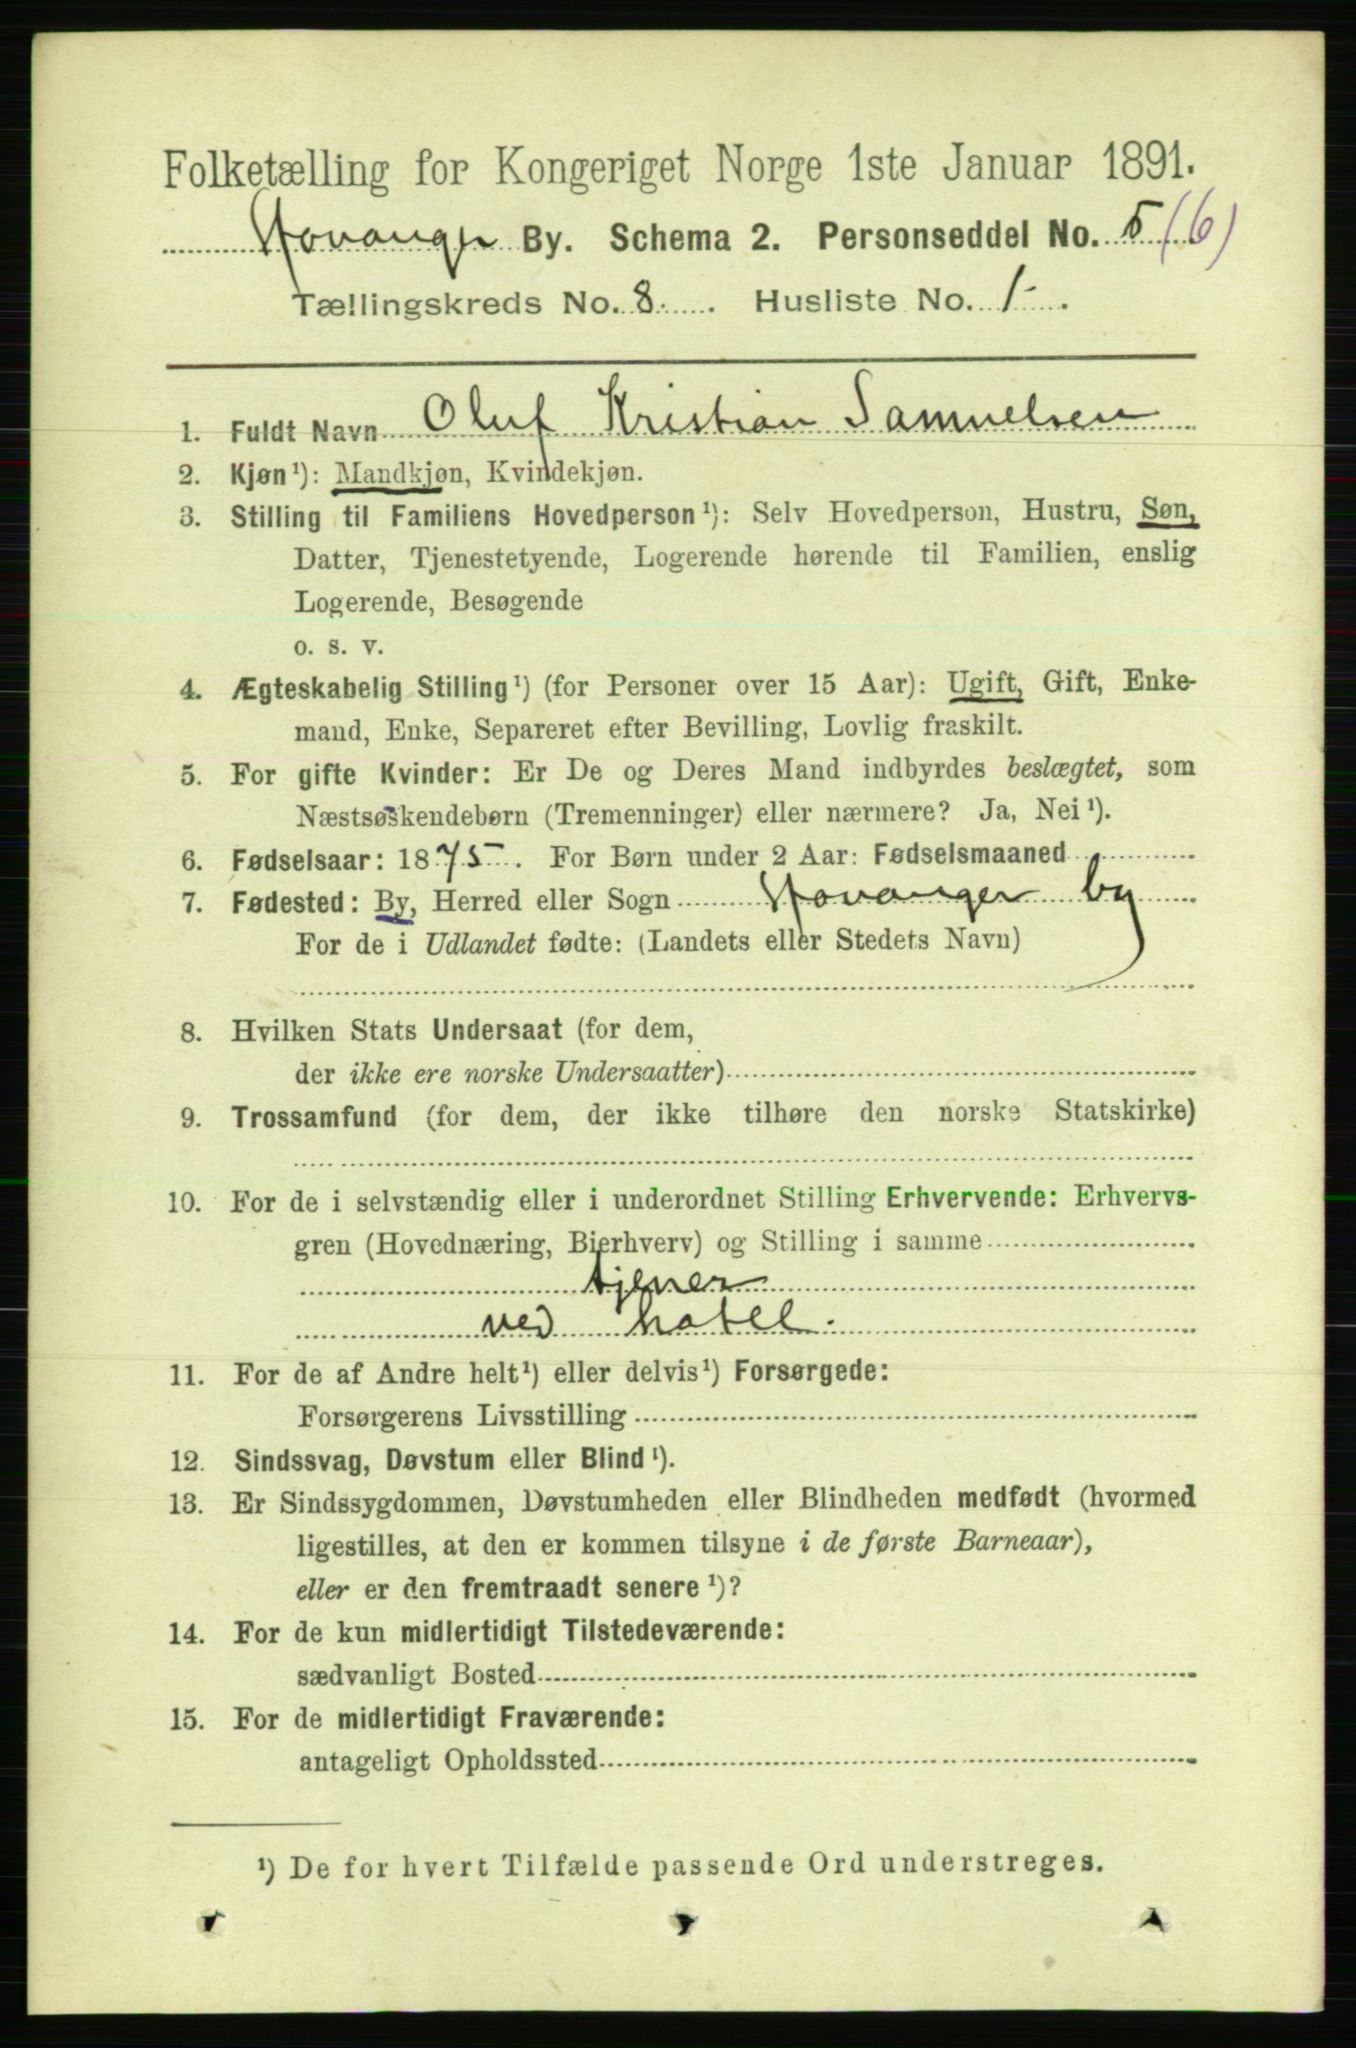 Folketælling for Kongeriget Norge 1ste Januar 1891.
Stavanger By. Schema 2. Personseddel No. 5 (6)
Tællingskreds No. 8. Husliste No. 1.
1. Fuldt Navn Oluf Kristian Samuelsen
2. Kjøn¹): Mandkjøn, Kvindekjøn.
3. Stilling til Familiens Hovedperson¹): Selv Hovedperson, Hustru, Søn,
Datter, Tjenestetyende, Logerende hørende til Familien, enslig
Logerende, Besøgende
o. s. v.
4. Ægteskabelig Stilling¹) (for Personer over 15 Aar): Ugift, Gift, Enke-
mand, Enke, Separeret efter Bevilling, Lovlig fraskilt.
5. For gifte Kvinder: Er De og Deres Mand indbyrdes beslægtet, som
Næstsøskendebørn (Tremenninger) eller nærmere? Ja, Nei¹).
6. Fødselsaar: 1875. For Børn under 2 Aar: Fødselsmaaned
7. Fødested: By, Herred eller Sogn Stavanger by
For de i Udlandet fødte: (Landets eller Stedets Navn)
8. Hvilken Stats Undersaat (for dem,
der ikke ere norske Undersaatter)
9. Trossamfund (for dem, der ikke tilhøre den norske Statskirke)
10. For de i selvstændig eller i underordnet Stilling Erhvervende: Erhvervs-
gren (Hovednæring, Bierhverv) og Stilling i samme
tjener
ved hotel.
11. For de af Andre helt¹) eller delvis¹) Forsørgede:
Forsørgerens Livsstilling
12. Sindssvag, Døvstum eller Blind¹).
13. Er Sindssygdommen, Døvstumheden eller Blindheden medfødt (hvormed
ligestilles, at den er kommen tilsyne i de første Barneaar),
eller er den fremtraadt senere¹)?
14. For de kun midlertidigt Tilstedeværende:
sædvanligt Bosted
15. For de midlertidigt Fraværende:
antageligt Opholdssted
¹) De for hvert Tilfælde passende Ord understreges.